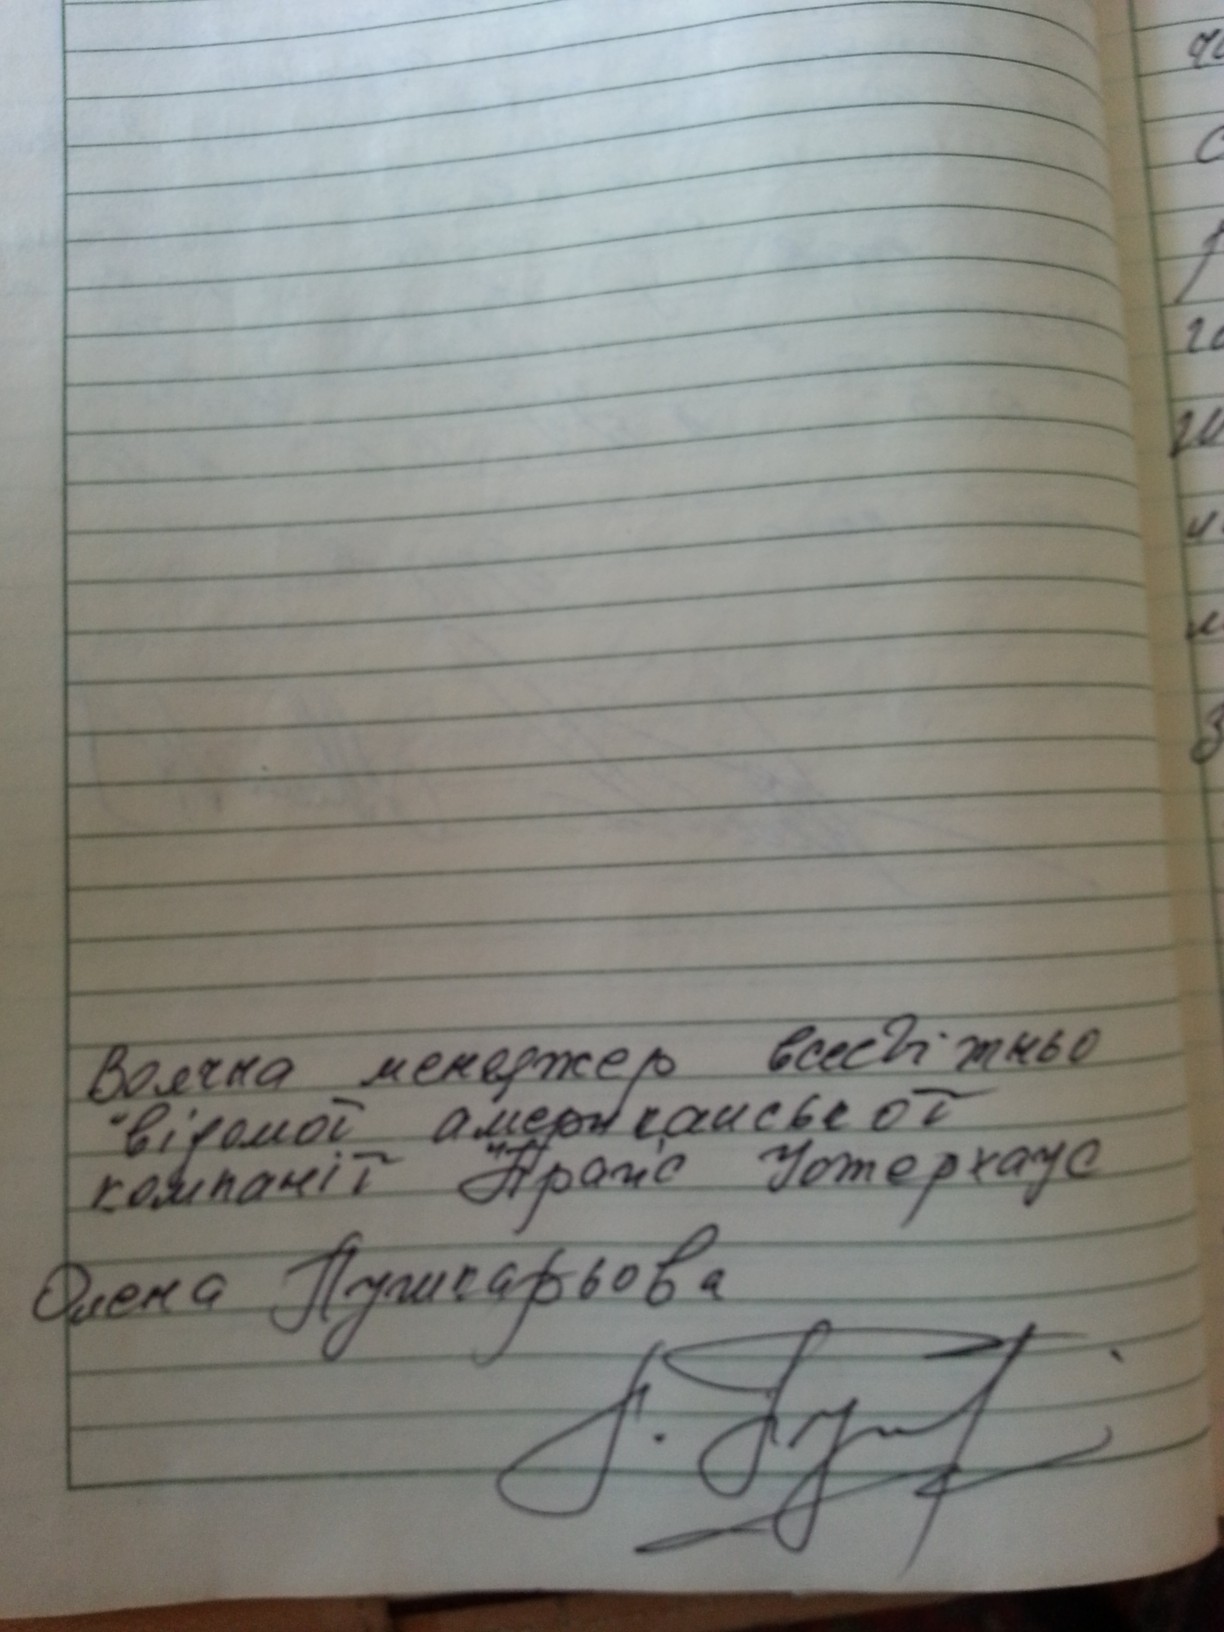 Волчна менеджер всесвітньо
відомої американської
компанії "Прайс Уотерхаус
Олена Пушкарьова